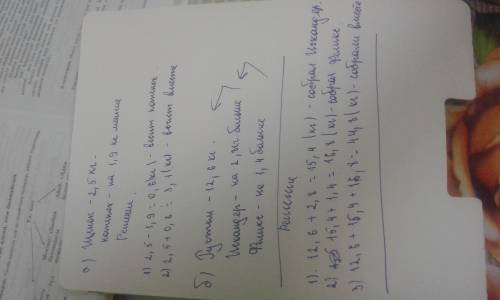 а) Щенок - 2,5 кг.
котенок - на 1,9 кг меньше
Решение.
1) 2,5 - 1,9 = 0,6(кг) - весит котенок.
2) 2,5 + 0,6 = 3,1(кг) - весят вместе
б) Рустам - 12,6 кг.
Искандер - на 2,8кг больше
Филюс - на 1,4 больше
Решение
1). 12,6 + 2,8 = 15,4 (кг) - собрал Искандер.
2) 15,4 + 1,4 = 16,8(кг) - собрал Филюс
3) 12,6 + 15,4 + 16,8 = 44,8(кг) - собрали вместе